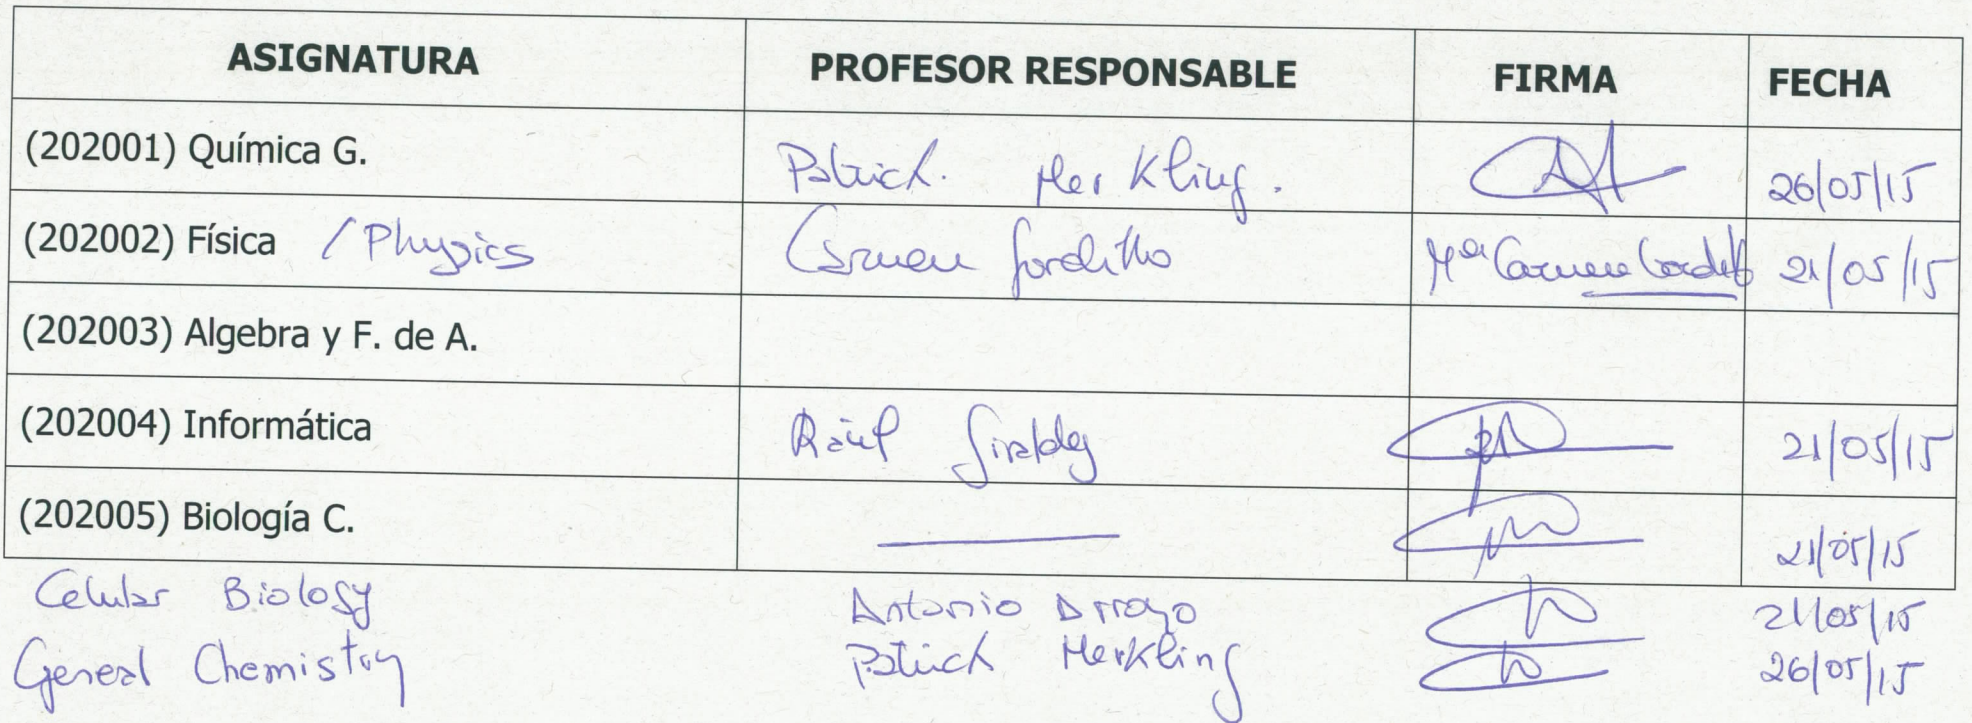 ASIGNATURA PROFESOR RESPONSABLE FIRMA FECHA
(202001) Química G. Patrick Merkling. 26/05/15
(202002) Física / Physics Carmen Gordillo Mª Carmen Gordillo 21/05/15
(202003) Algebra y F. de A.
(202004) Informática Raúl Giraldez 21/05/15
(202005) Biología C. 21/05/15
Celular Biology Antonio Arroyo 21/05/15
General Chemistry Patrick Merkling 26/05/15